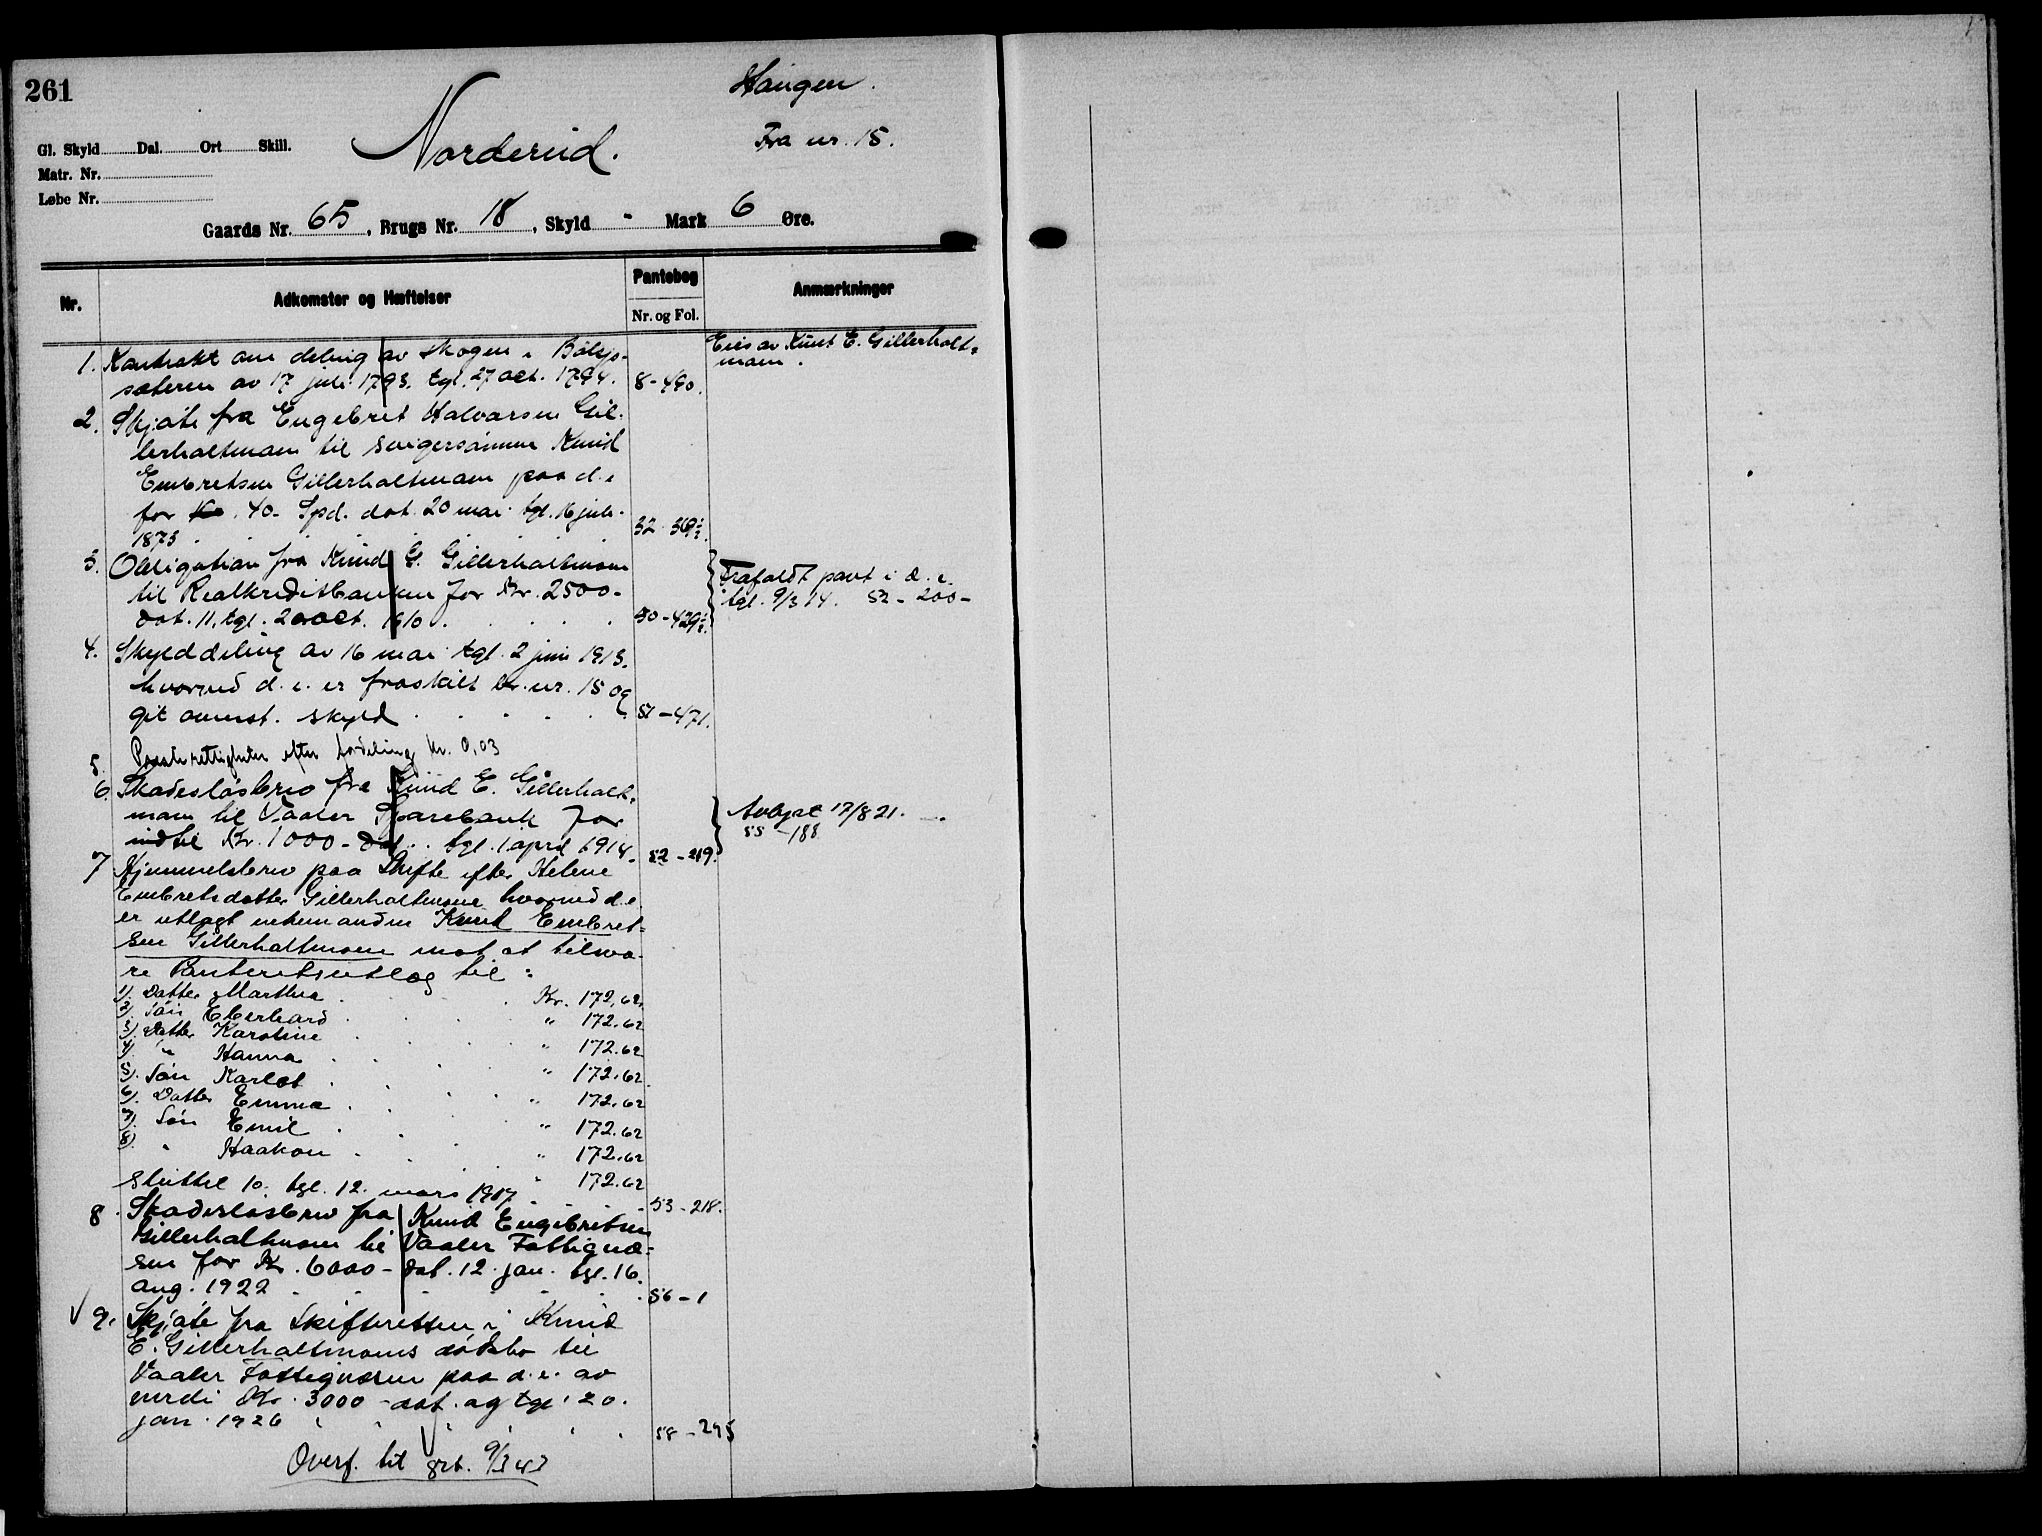 261
Haugen.
Norderud.
Fra nr. 15.
Gl. Skyld Dal. Ort Skill.
Matr. Nr.
Løbe Nr.
Gaards Nr. 65, Brugs Nr. 18, Skyld - Mark 6 Øre.
Nr. Adkomster og Hæftelser Pantebog Nr. og Fol. Anmærkninger
1. Kontrakt om deling av skogen i Bølsjø-
sæteren av 17 juli 1793. tgl. 27 oct. 1794. 8-490.
Eies av Knut E. Gillerholt-
moen.
2. Skjøte fra Engebret Halvorsen Gil-
lerholtmoen til svigersønnen Knud
Embretsen Gillerholtmoen paa d. e
for Kr. 40- Spd. dat. 20 mai tgl. 16 juli
1873 32-369½.
3. Obligation fra Knud G. Gillerholtmoen
til Realkreditbanken for Kr. 2500-
dat. 11, tgl. 20 oct. 1910. 50-429½.
Frafaldt pant i d. e.
tgl. 9/3 14. 52-200-
4. Skylddeling av 16 mai tgl. 2 juni 1913.
hvorved d. e. er fraskilt br. nr. 15 og
git ovenst. skyld 51-471.
5. efter fordeling kr. 0,03
6. Skadesløsbrev fra Knud E. Gillerholt-
moen til Vaaler Sparebank for
indtil Kr. 1000- Dat. tgl. 1 april 1914. 52-219.
Avlyst 17/8 21.
55-188
7 Hjemmelsbrev paa Skifte efter Helene
Embretsdatter Gillerholtmoen hvorved d. e.
er utlagt enkemanden Knut Embret-
sen Gillerholtmoen mot at tilsva-
re Panteretsutlæg til:
1). Datter Marthea Kr. 172,62
2). Søn Eberhard " 172.62
3). Datter Karoline " 172.62
4). " Hanna " 172.62
5). Søn Karlot " 172.62
6). Datter Emma " 172.62
7). Søn Emil " 172.62
8). " Haakon " 172.62
sluttet 10. tgl. 12. mars 1917 53-218.
8. Skadesløsbrev fra Knud Engebretsen
Gillerholtmoen til Vaaler Fattigvæ-
sen for Kr. 6000- dat. 12. jan. tgl. 16.
aug. 1922 56-1
√ 9. Skjøte fra Skifteretten i Knut
E. Gillerholtmoens dødsbo til
Vaaler Fattigvæsen paa d. e. av
verdi Kr. 3000- dat. og tgl. 20.
jan. 1926 58-295
Overf. til grb. 9/3 43